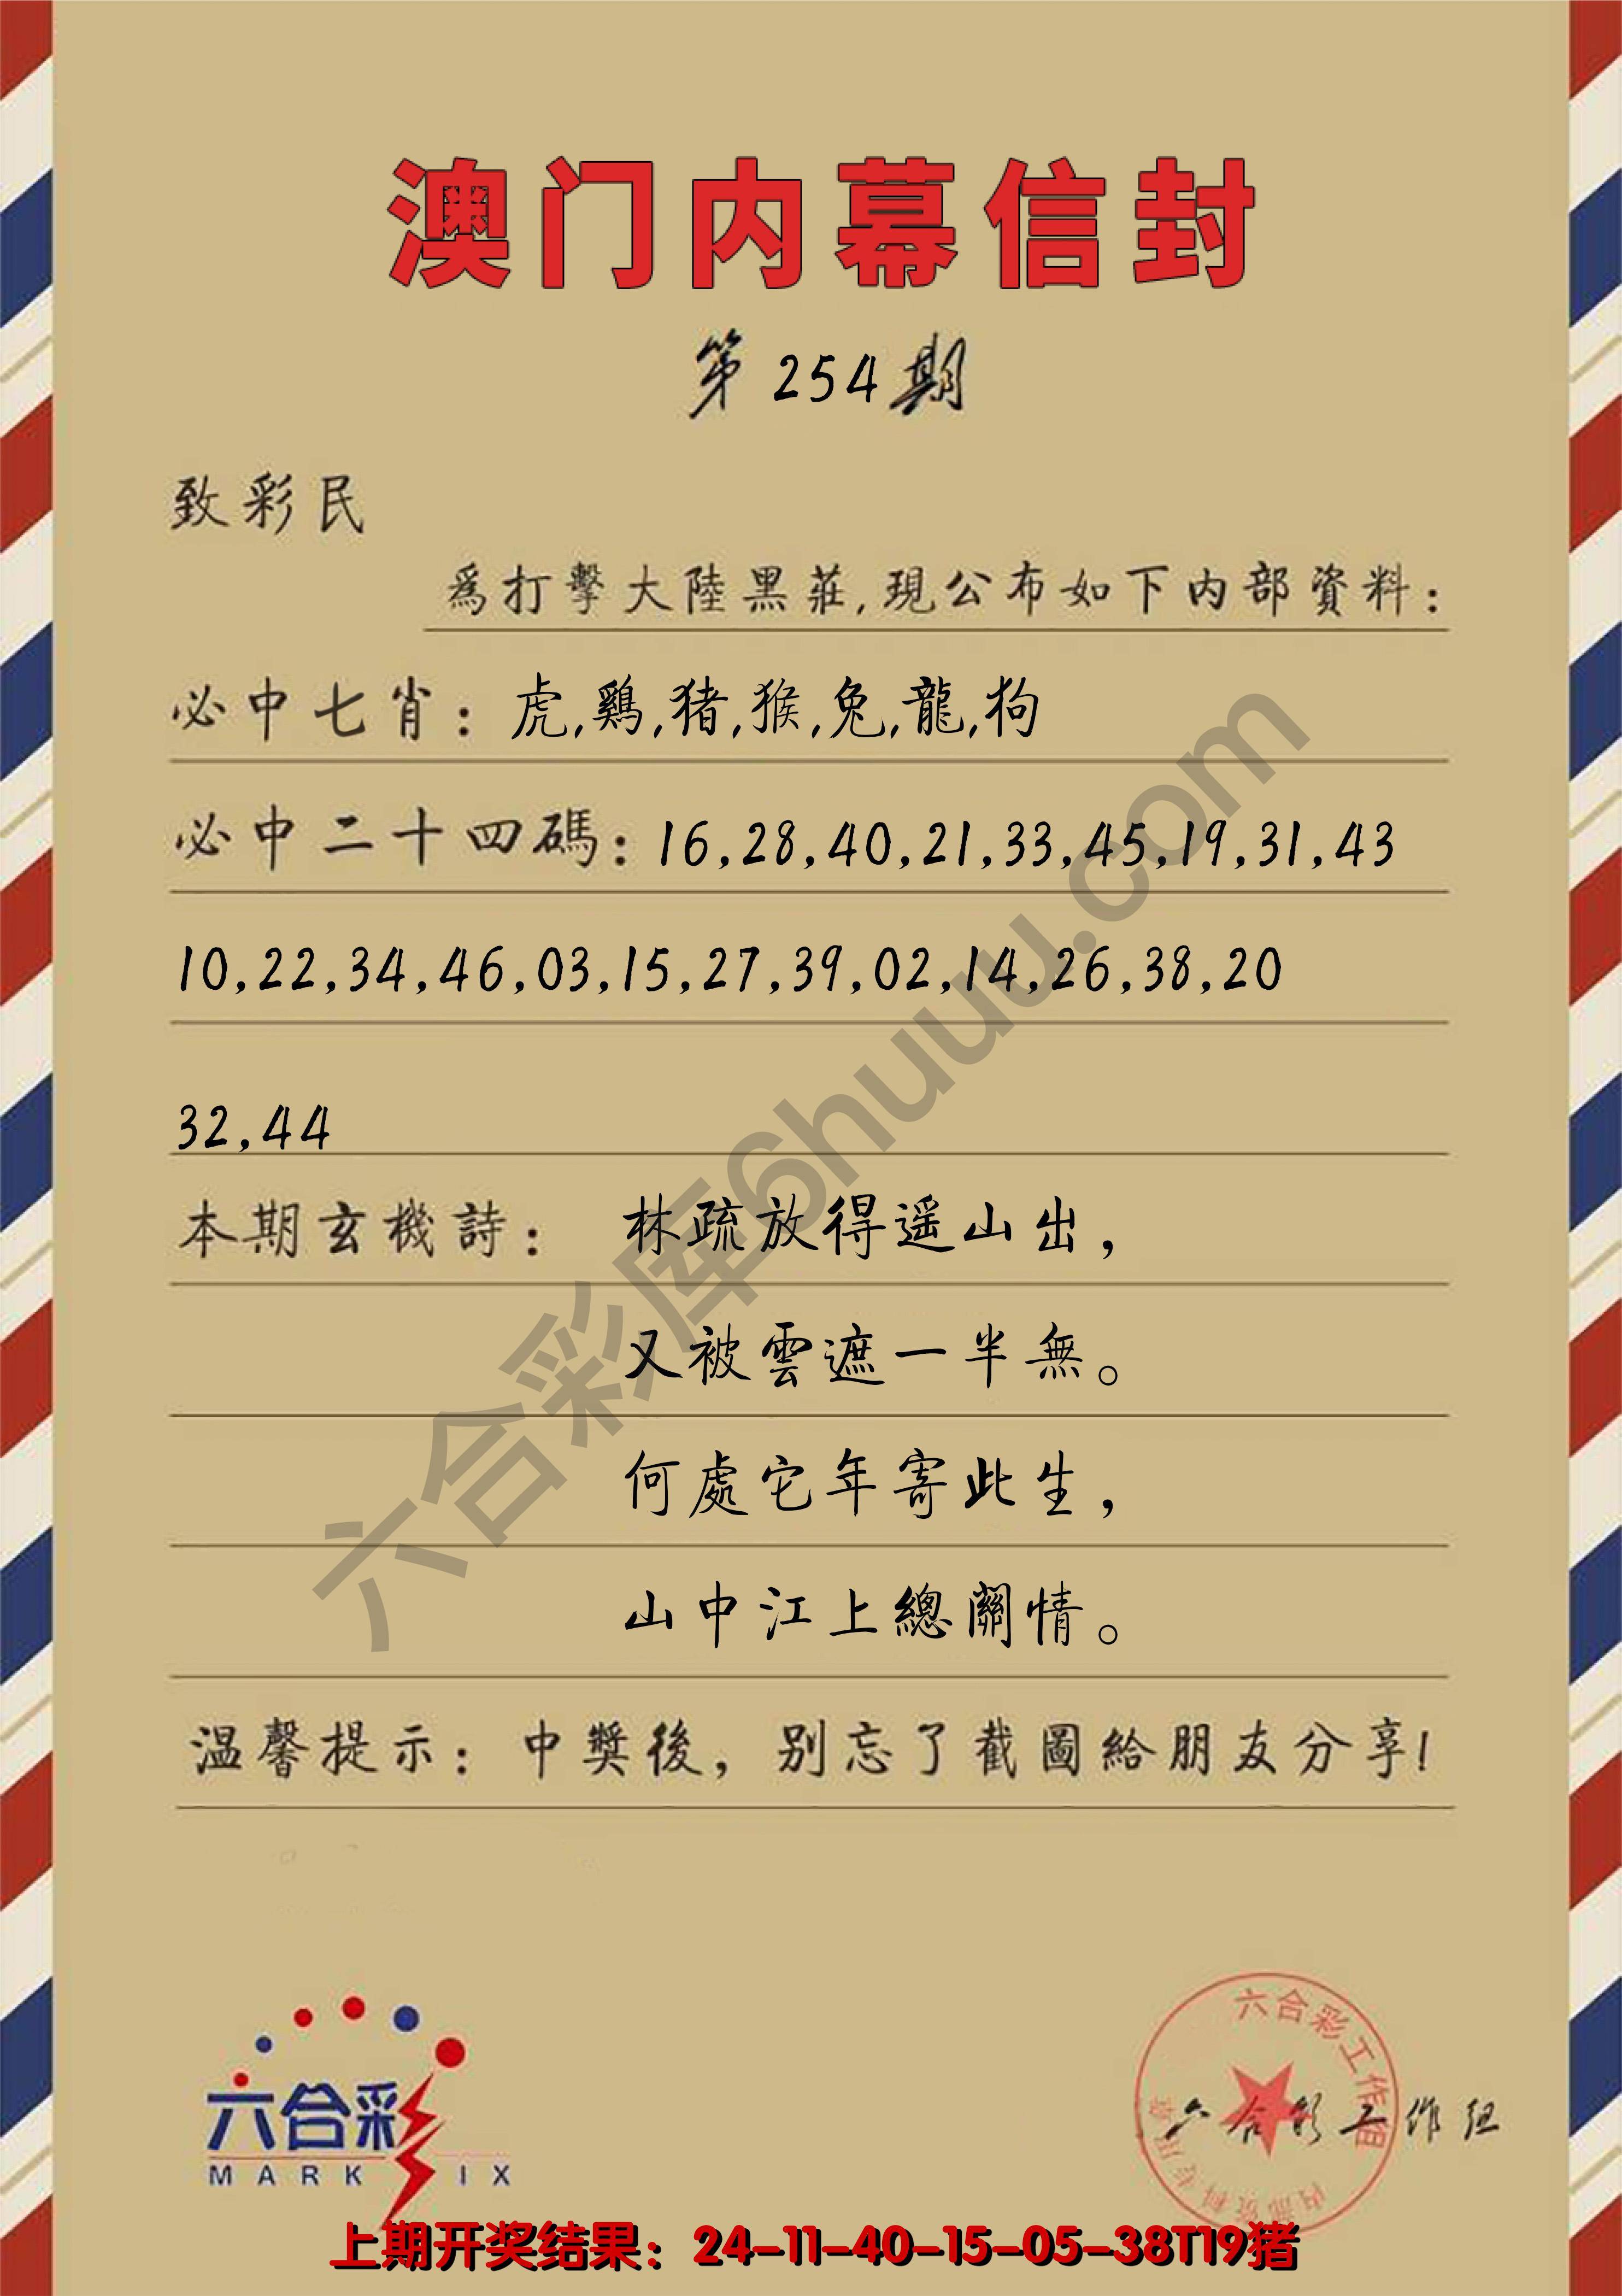 澳门内幕信封
第254期
致彩民
爲打擊大陸黑莊,現公布如下内部資料:
必中七肖: 虎,鷄,猪,猴,兔,龍,狗
必中二十四碼: 16,28,40,21,33,45,19,31,43
10,22,34,46,03,15,27,39,02,14,26,38,20
32,44
本期玄機詩: 林疏放得遥山出,
又被雲遮一半無。
何處它年寄此生,
山中江上總關情。
温馨提示: 中獎後, 别忘了截圖給朋友分享!
六合彩
MARK SIX
六合彩工作组
内部资料专用章
六合彩工作组
上期开奖结果: 24-11-40-15-05-38T19猪
六合彩库6huuu.com